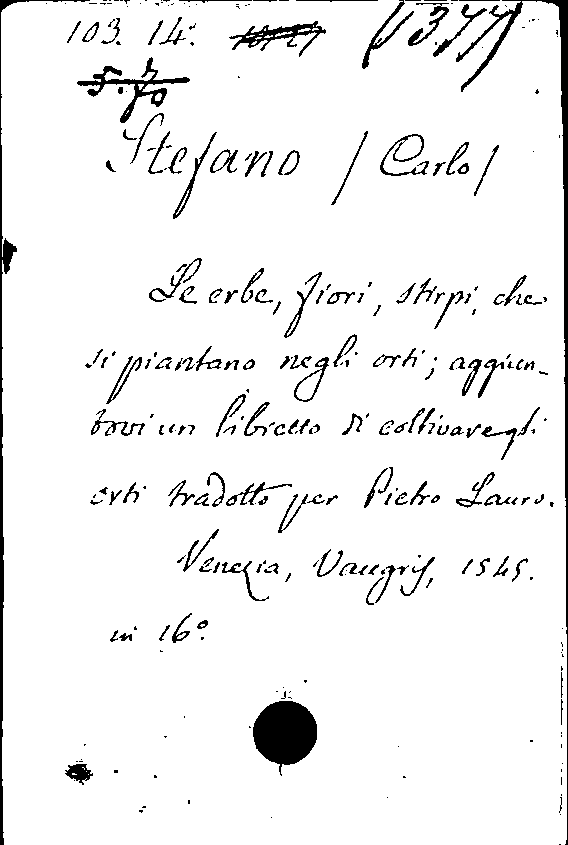 103. 14. (1377)
5.70
Stefano / Carlo /
Le erbe, fiori, stirpi, che
si piantano negli orti; aggiun-
tovi un libretto di coltivare gli
orti tradotto per Pietro Lauro.
Venezia, Vaugris, 1545.
in 16°.